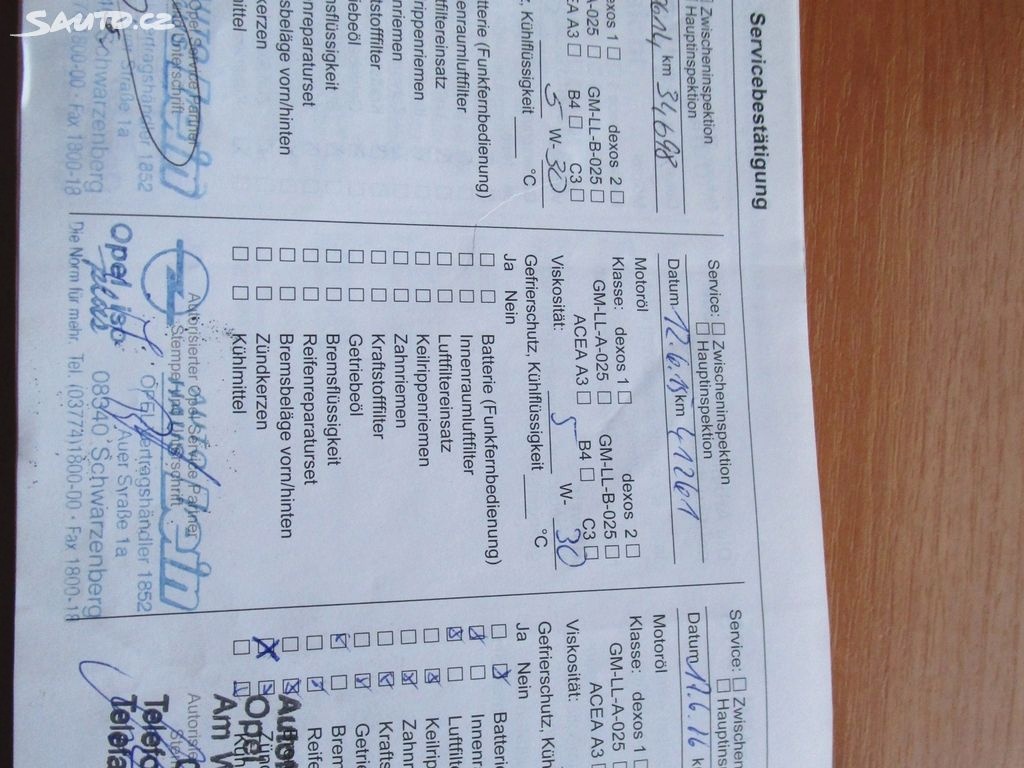 Sauto.cz
Servicebestätigung
Zwischeninspektion
Hauptinspektion
km 34698
dexos 1 □ dexos 2 □
A-025 □ GM-LL-B-025 □
ACEA A3 □ B4 □ C3 □
5 W- 30
Kühlflüssigkeit °C
tterie (Funkfernbedienung)
enraumluftfilter
tfiltereinsatz
rippenriemen
nriemen
tstofffilter
iebeöl
nsflüssigkeit
enreparaturset
nsbeläge vorn/hinten
kerzen
mittel
Opel Service Partner
nterschrift
rtragshändler 1852
Straße 1a
Schwarzenberg
800-00 · Fax 1800-18
Service: □ Zwischeninspektion
□ Hauptinspektion
Datum 12.6.15 km 41261
Motoröl
Klasse: dexos 1 □ dexos 2 □
GM-LL-A-025 □ GM-LL-B-025 □
ACEA A3 □ B4 □ C3 □
Viskosität: 5 W- 30
Gefrierschutz, Kühlflüssigkeit °C
Ja Nein
□ □ Batterie (Funkfernbedienung)
□ □ Innenraumluftfilter
□ □ Luftfiltereinsatz
□ □ Keilrippenriemen
□ □ Zahnriemen
□ □ Kraftstofffilter
□ □ Getriebeöl
□ □ Bremsflüssigkeit
□ □ Reifenreparaturset
□ □ Bremsbeläge vorn/hinten
□ □ Zündkerzen
□ □ Kühlmittel
Autorisierter Opel Service Partner
Stempel und Unterschrift
OPEL Vertragshändler 1852
Auer Straße 1a
Opel ist
08340 Schwarzenberg
Die Norm für mehr. Tel. (03774)1800-00 · Fax 1800-18
Service: □ Zwischen
□ Hauptins
Datum 17.6.16 k
Motoröl
Klasse: dexos 1 □
GM-LL-A-025 □
ACEA A3 □
Viskosität:
Gefrierschutz, Küh
Ja Nein
Batter
Innenr
Luftfilt
Keilrip
Zahnr
Krafts
Getri
Brem
Reife
Opel
Am W
Autoris
Telefo
Telefa